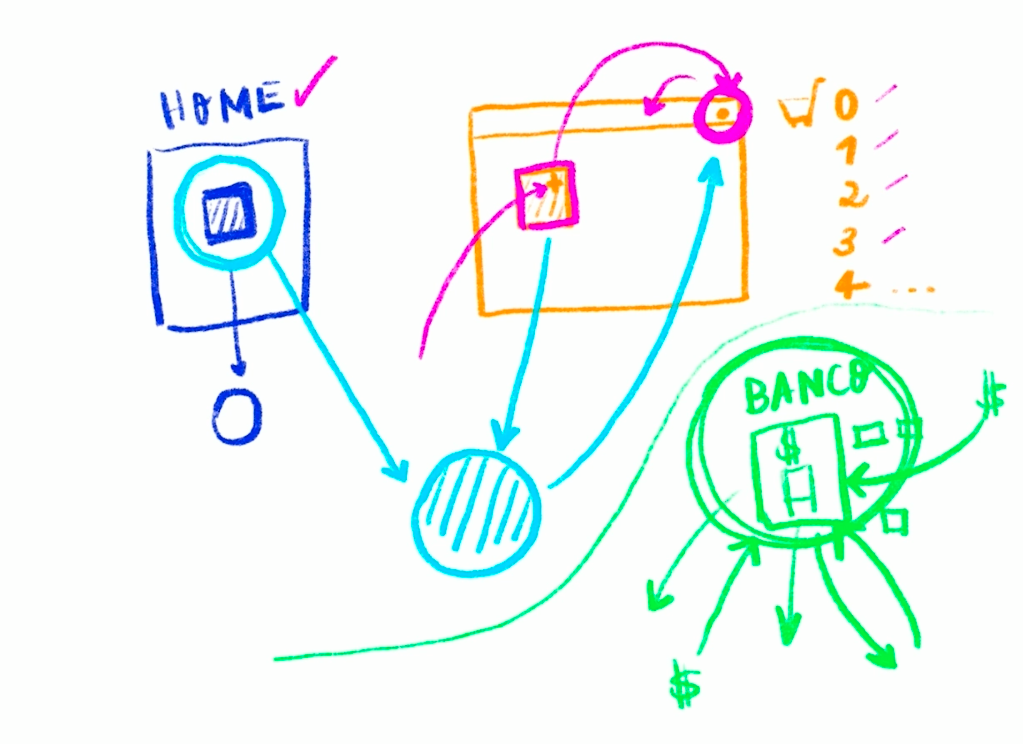 HOME
0
1
2
3
4 ...
BANCO
$
$
$